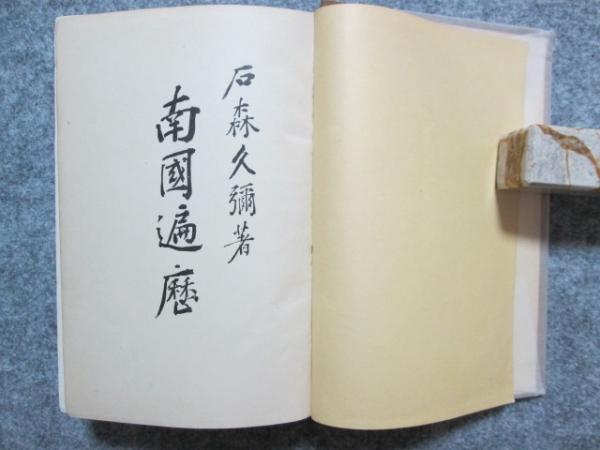 石森久彌著
南國遍歷